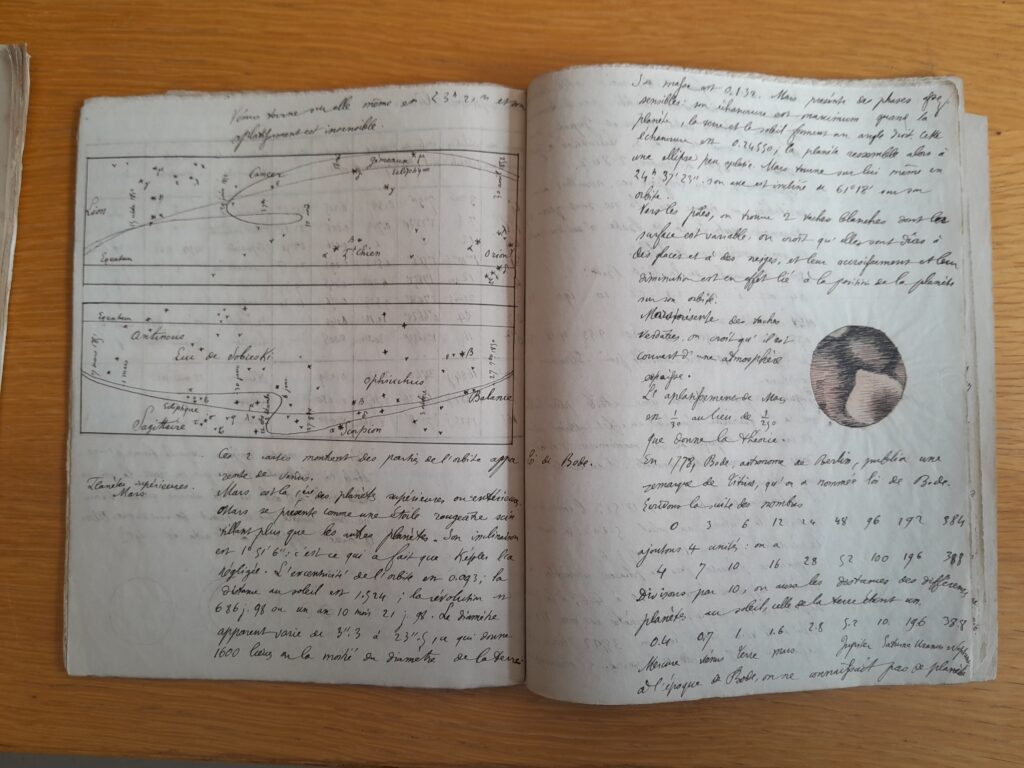 Vénus tourne sur elle même en 23h 21m et son
aplatissement est insensible.
Gémeaux
écliptique
Cancer
Léon
Pt Chien
Orion
Equateur
Equateur
Antinoüs
Ecu de Sobieski
Ophiuchus
Balance
Ecliptique
Sagittaire
Scorpion
Ces 2 cartes montrent des parties de l'orbite appa
rente de Vénus.
Planètes supérieures.
Mars
Mars est la 1ère des planètes supérieures ou extérieures
Mars se présente comme une étoile rougeatre scin
tillant plus que les autres planètes. Son inclinaison
est 1° 51' 6"; c'est ce qui a fait que Képler l'a
négligée. L'excentricité de l'orbite est 0.093; la
distance au soleil est 1.524; la révolution est
686 j. 98 ou un an 10 mois 21 j. 98. Le diamètre
apparent varie de 3".3 à 23".5, ce qui donne
1600 lieues ou la moitié du diamètre de la terre
Sa masse est 0.132. Mars présente des phases
sensibles: son échancrure est maximum quand la
planète, la terre et le soleil forment un angle droit cette
échancrure est 0.24550; la planète ressemble alors à
une ellipse peu aplatie. Mars tourne sur lui même en
24h 37' 23". son axe est incliné de 61° 18' sur son
orbite.
Vers les pôles, on trouve 2 taches blanches dont la
surface est variable, on croit qu'elles sont dues à
des glaces et à des neiges, et leur accroissement et leur
diminution est en effet lié à la position de la planète
sur son orbite.
Mars présente des taches
verdatres, on croit qu'il est
couvert d'une atmosphère
épaisse.
L'aplatissement de Mars
est 1/30 au lieu de 1/250
que donne la théorie.
Loi de Bode.
En 1778, Bode, astronome de Berlin, publia une
remarque de Titius, qu'on a nommée loi de Bode.
Ecrivons la suite des nombres
0 3 6 12 24 48 96 192 384
ajoutons 4 unités: on a
4 7 10 16 28 52 100 196 388
Divisons par 10, on aura les distances des différentes
planètes au soleil, celle de la terre étant un.
0.4 0.7 1 1.6 2.8 5.2 10 19.6 38.8
Mercure Vénus Terre Mars Jupiter Saturne Uranus Neptune
à l'époque de Bode, on ne connaissait pas de planète